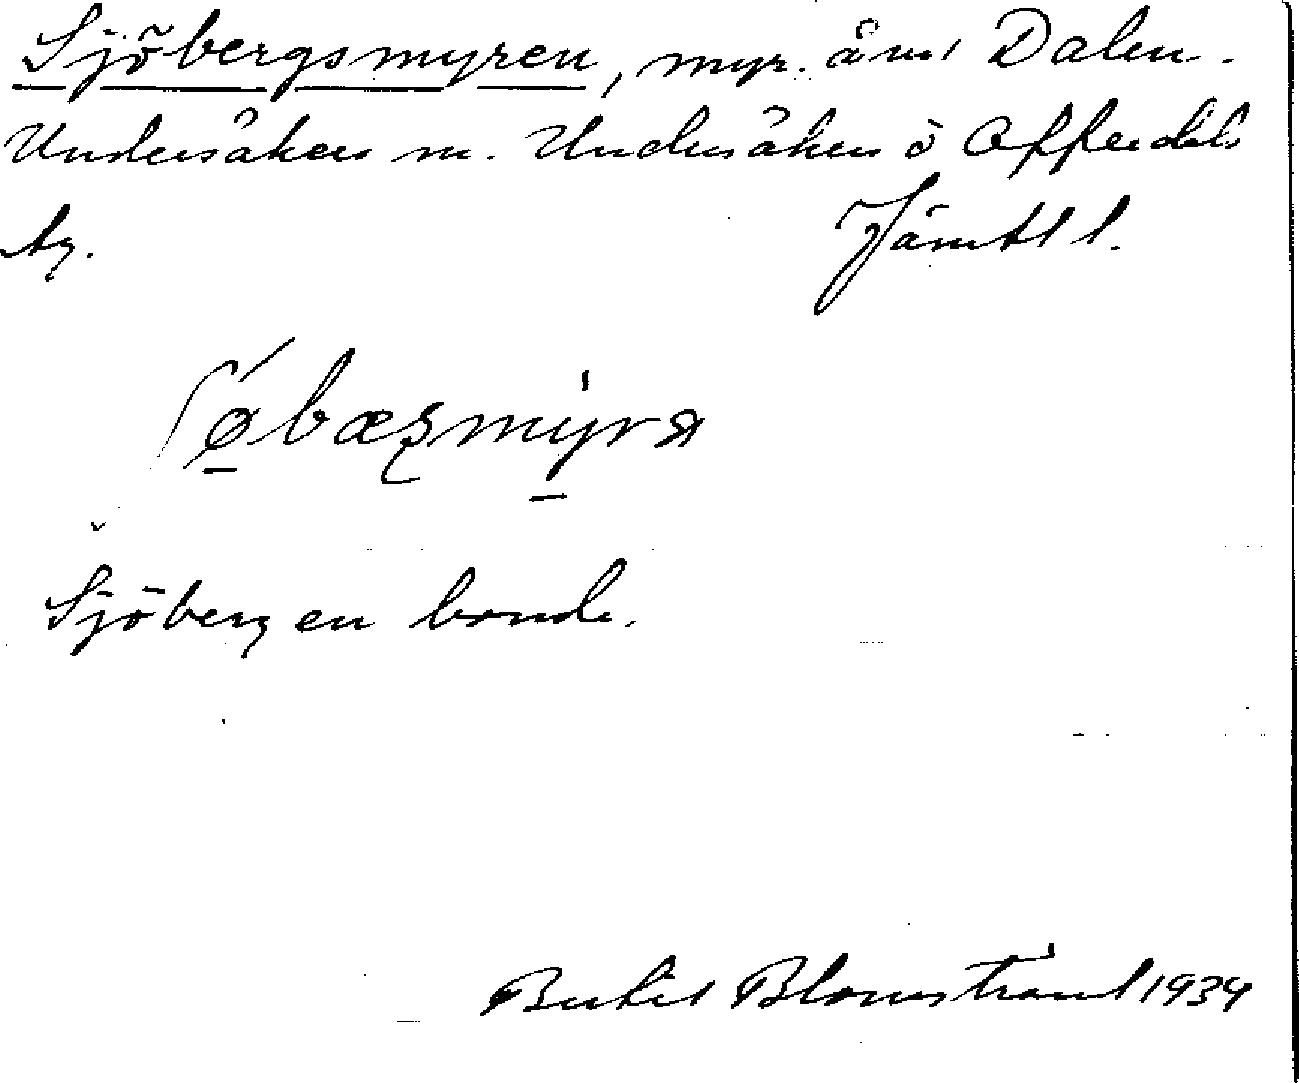 Sjöbergsmyren, myr. Dalen.
Undersåkers sn. Undersåkers o Offerdals
tg. Jämtl l.
Sjöberg en bonde.
Bertil Blomstrand 1934